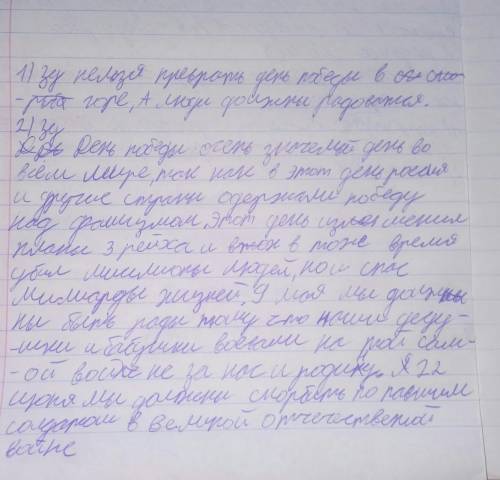 1) Зу нельзя преврать день победы в
горе, А люди должны радоваться.
2) Зу
День победы очень значемый день во
всем мире, так как в этот день россия
и другие страны одержали победу
над фашизмом, Этот день изменил
планы 3 рейха и в тоже время
убил миллионы людей, но и спас
милиарды жизней, 9 мая мы должны
ны быть рады тому что наши деду-
-шки и бабушки воевали на этой сам-
-ой войне за нас и родину. А 22
июня мы должны скорбить по павшим
солдатам в великой отечественой
войне